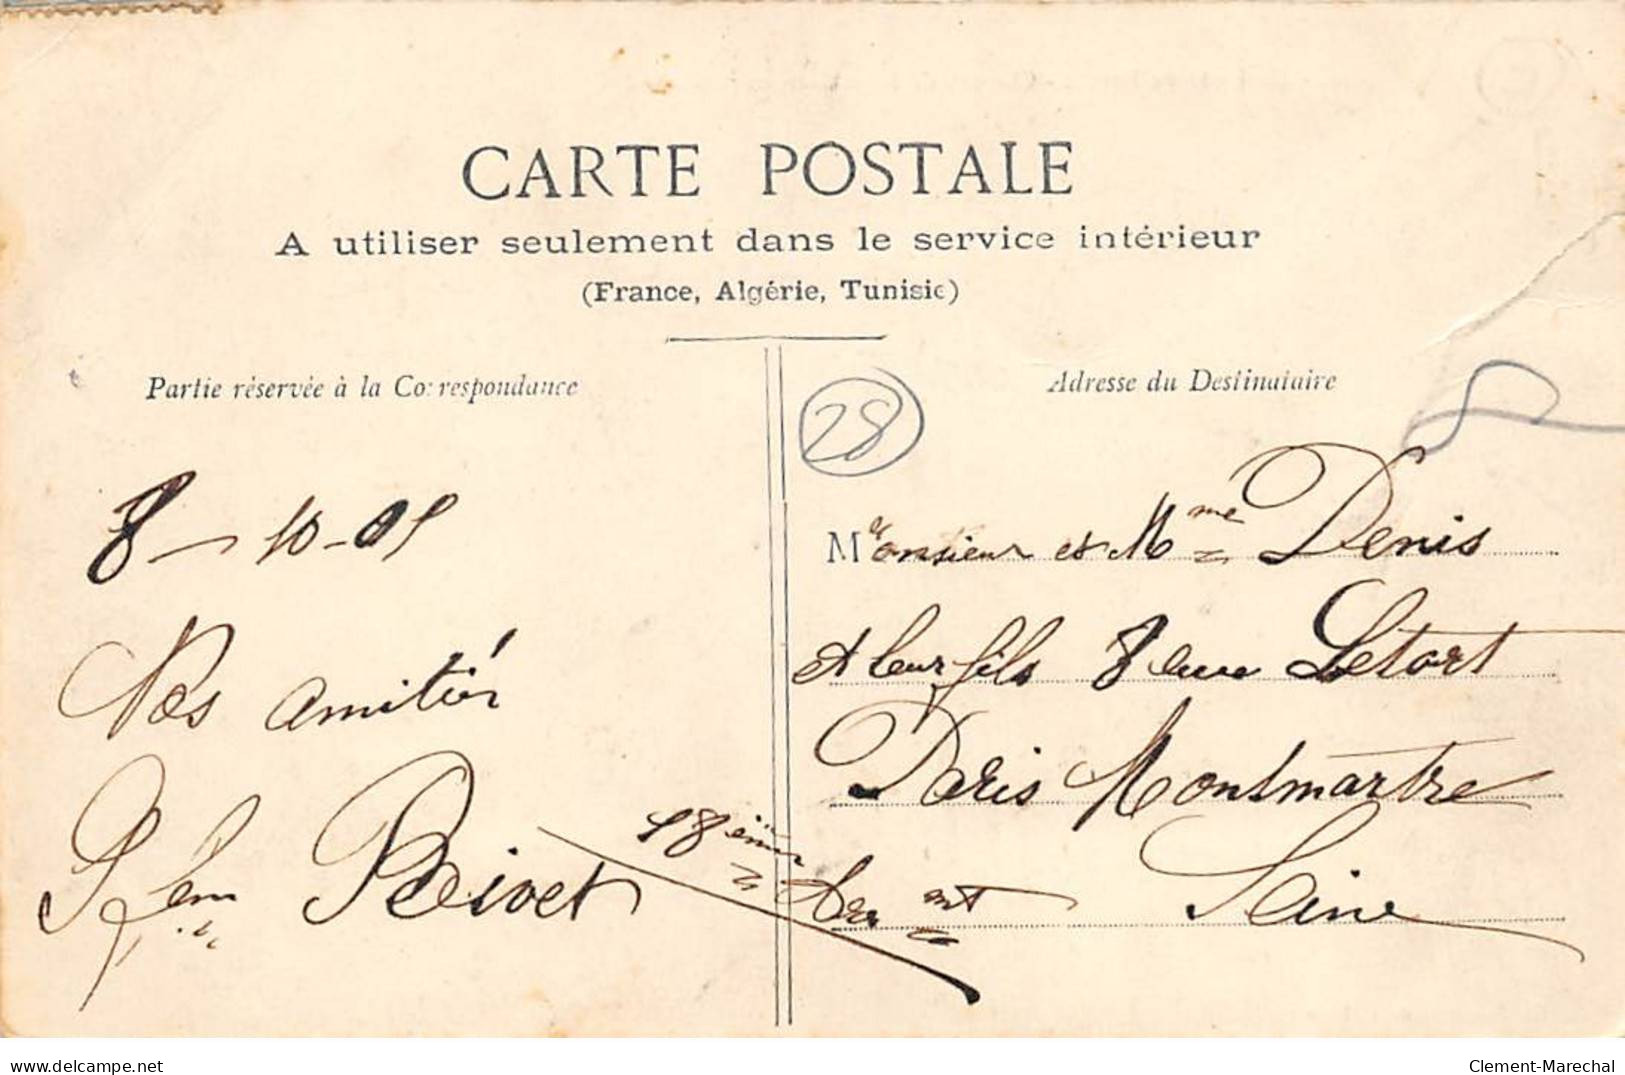 CARTE POSTALE
A utiliser seulement dans le service intérieur
(France, Algérie, Tunisie)
Partie réservée à la Correspondance
8 - 10 - 05
Nos amitiés
Adresse du Destinataire
28
Monsieur et Mme Denis
et leur fils 8 rue Letort
Paris Montmartre
18ème Arr.ent Seine
www.delcampe.net
Clement-Marechal